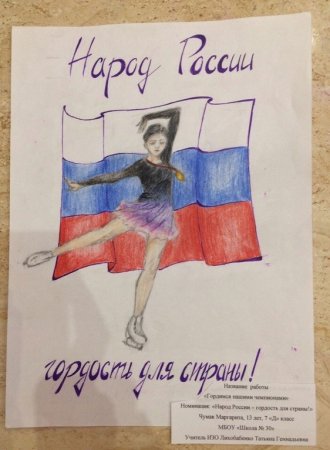 Народ России
гордость для страны!
Название работы
«Гордимся нашими чемпионами»
Номинация: «Народ России – гордость для страны!»
Чумак Маргарита, 13 лет, 7 «Д» класс
МБОУ «Школа № 30»
Учитель ИЗО Лихобабенко Татьяна Геннадьевна